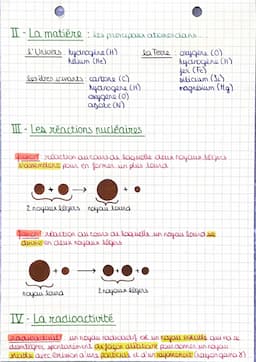 II - La matière : les principaux atomes dans...
L'Univers : hydrogène (H)
hélium (He)
La Terre : oxygène (O)
hydrogène (H)
fer (Fe)
silicium (Si)
magnésium (Mg)
Les êtres vivants : carbone (C)
hydrogène (H)
oxygène (O)
azote (N)
III - Les réactions nucléaires
Fusion : réaction au cours de laquelle deux noyaux légers
s'assemblent pour en former un plus lourd
2 noyaux légers noyau lourd
Fission : réaction au cours de laquelle un noyau lourd se
divise en deux noyaux légers
noyau lourd 2 noyaux légers
IV - La radioactivité
Radioactivité : un noyau radioactif est un noyau instable qui va se
désintégrer spontanément de façon aléatoire pour donner un noyau
stable avec émission d'une particule et d'un rayonnement (rayon gamma γ)